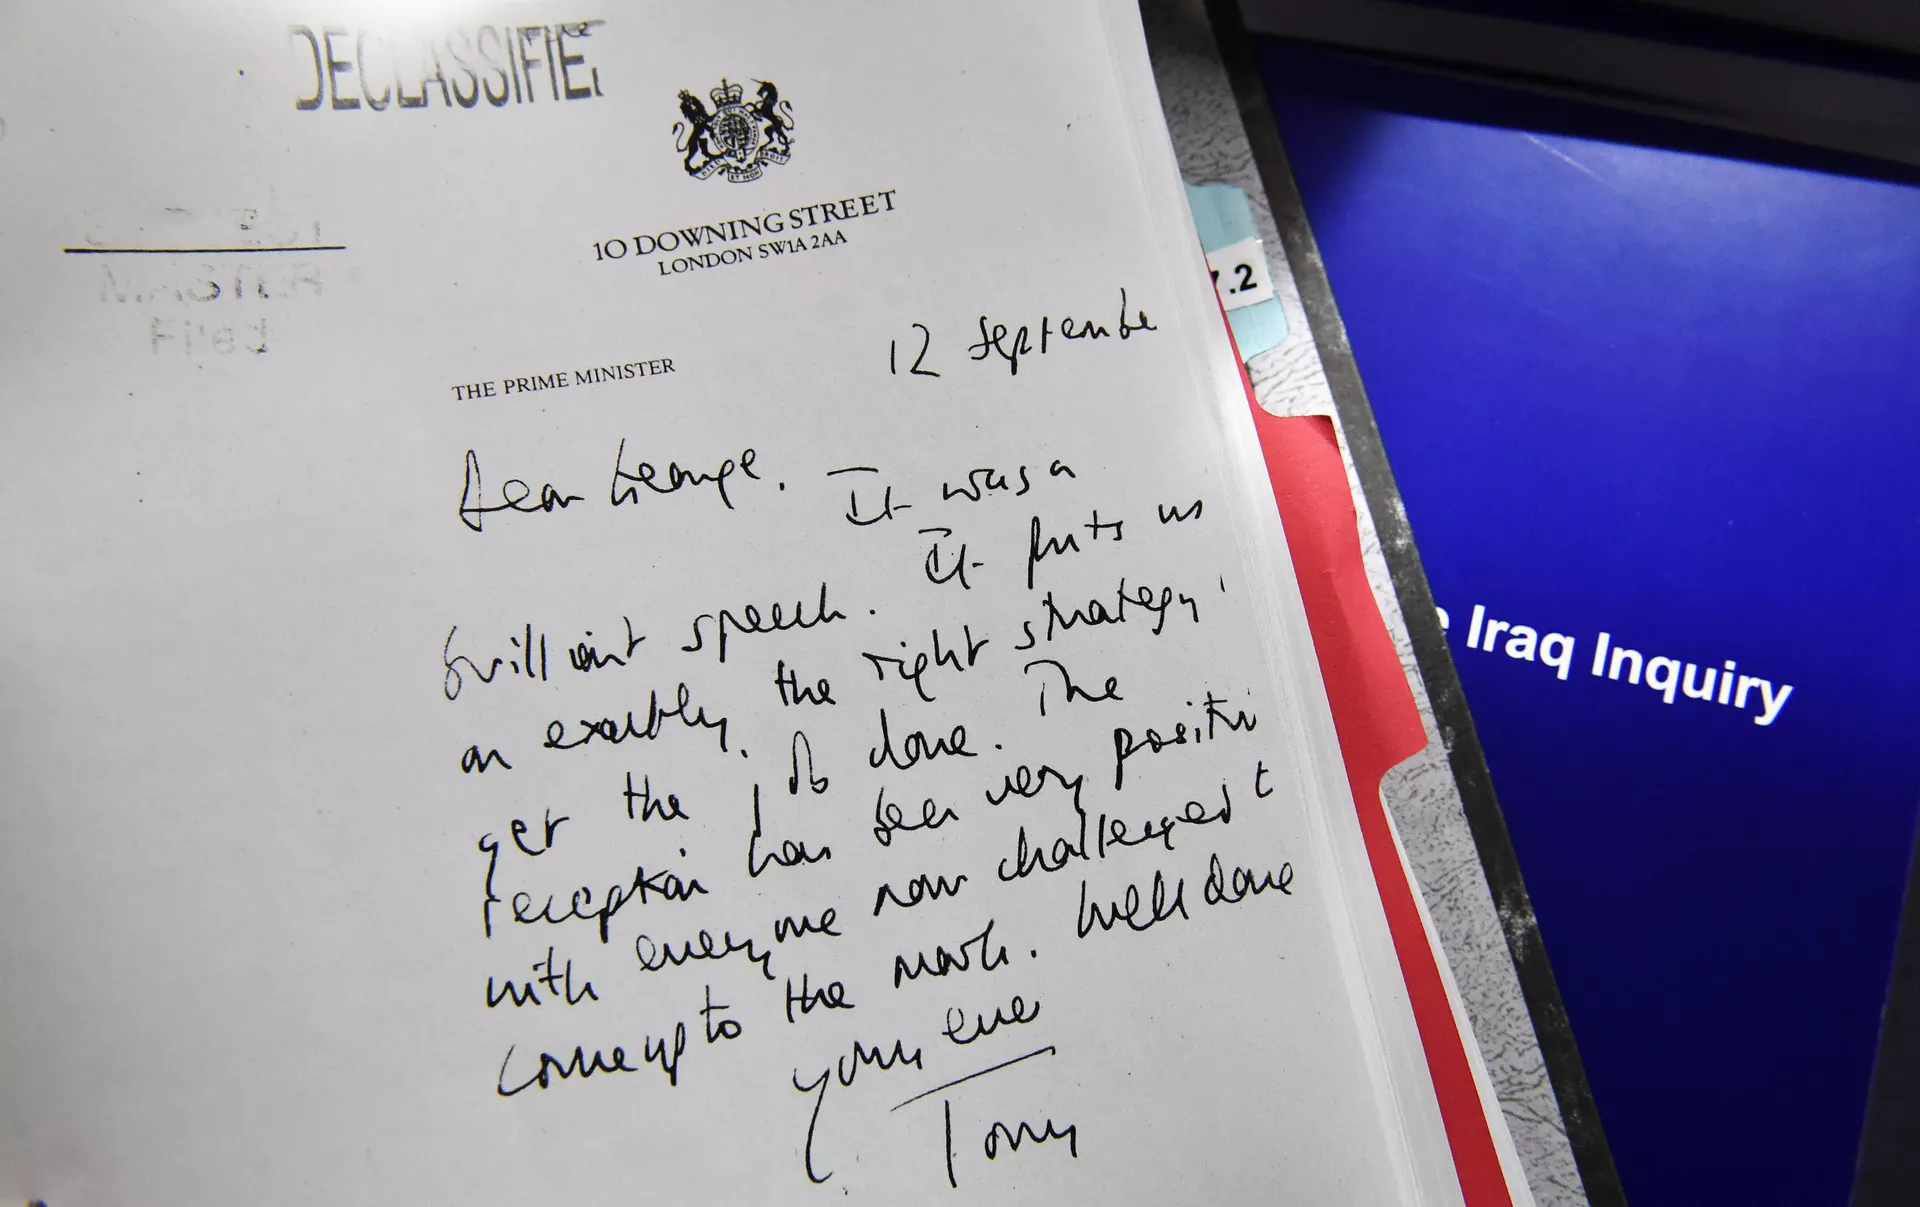 DECLASSIFIE
10 DOWNING STREET
LONDON SW1A 2AA
MASTER
Filed
THE PRIME MINISTER
12 September
Dear George.
It was a
brilliant speech. It puts us
on exactly the right strategy
get the job done. The
reception has been very positive
with everyone now challenged t
come up to the mark. Well done
yours ever
Tony
7.2
e Iraq Inquiry